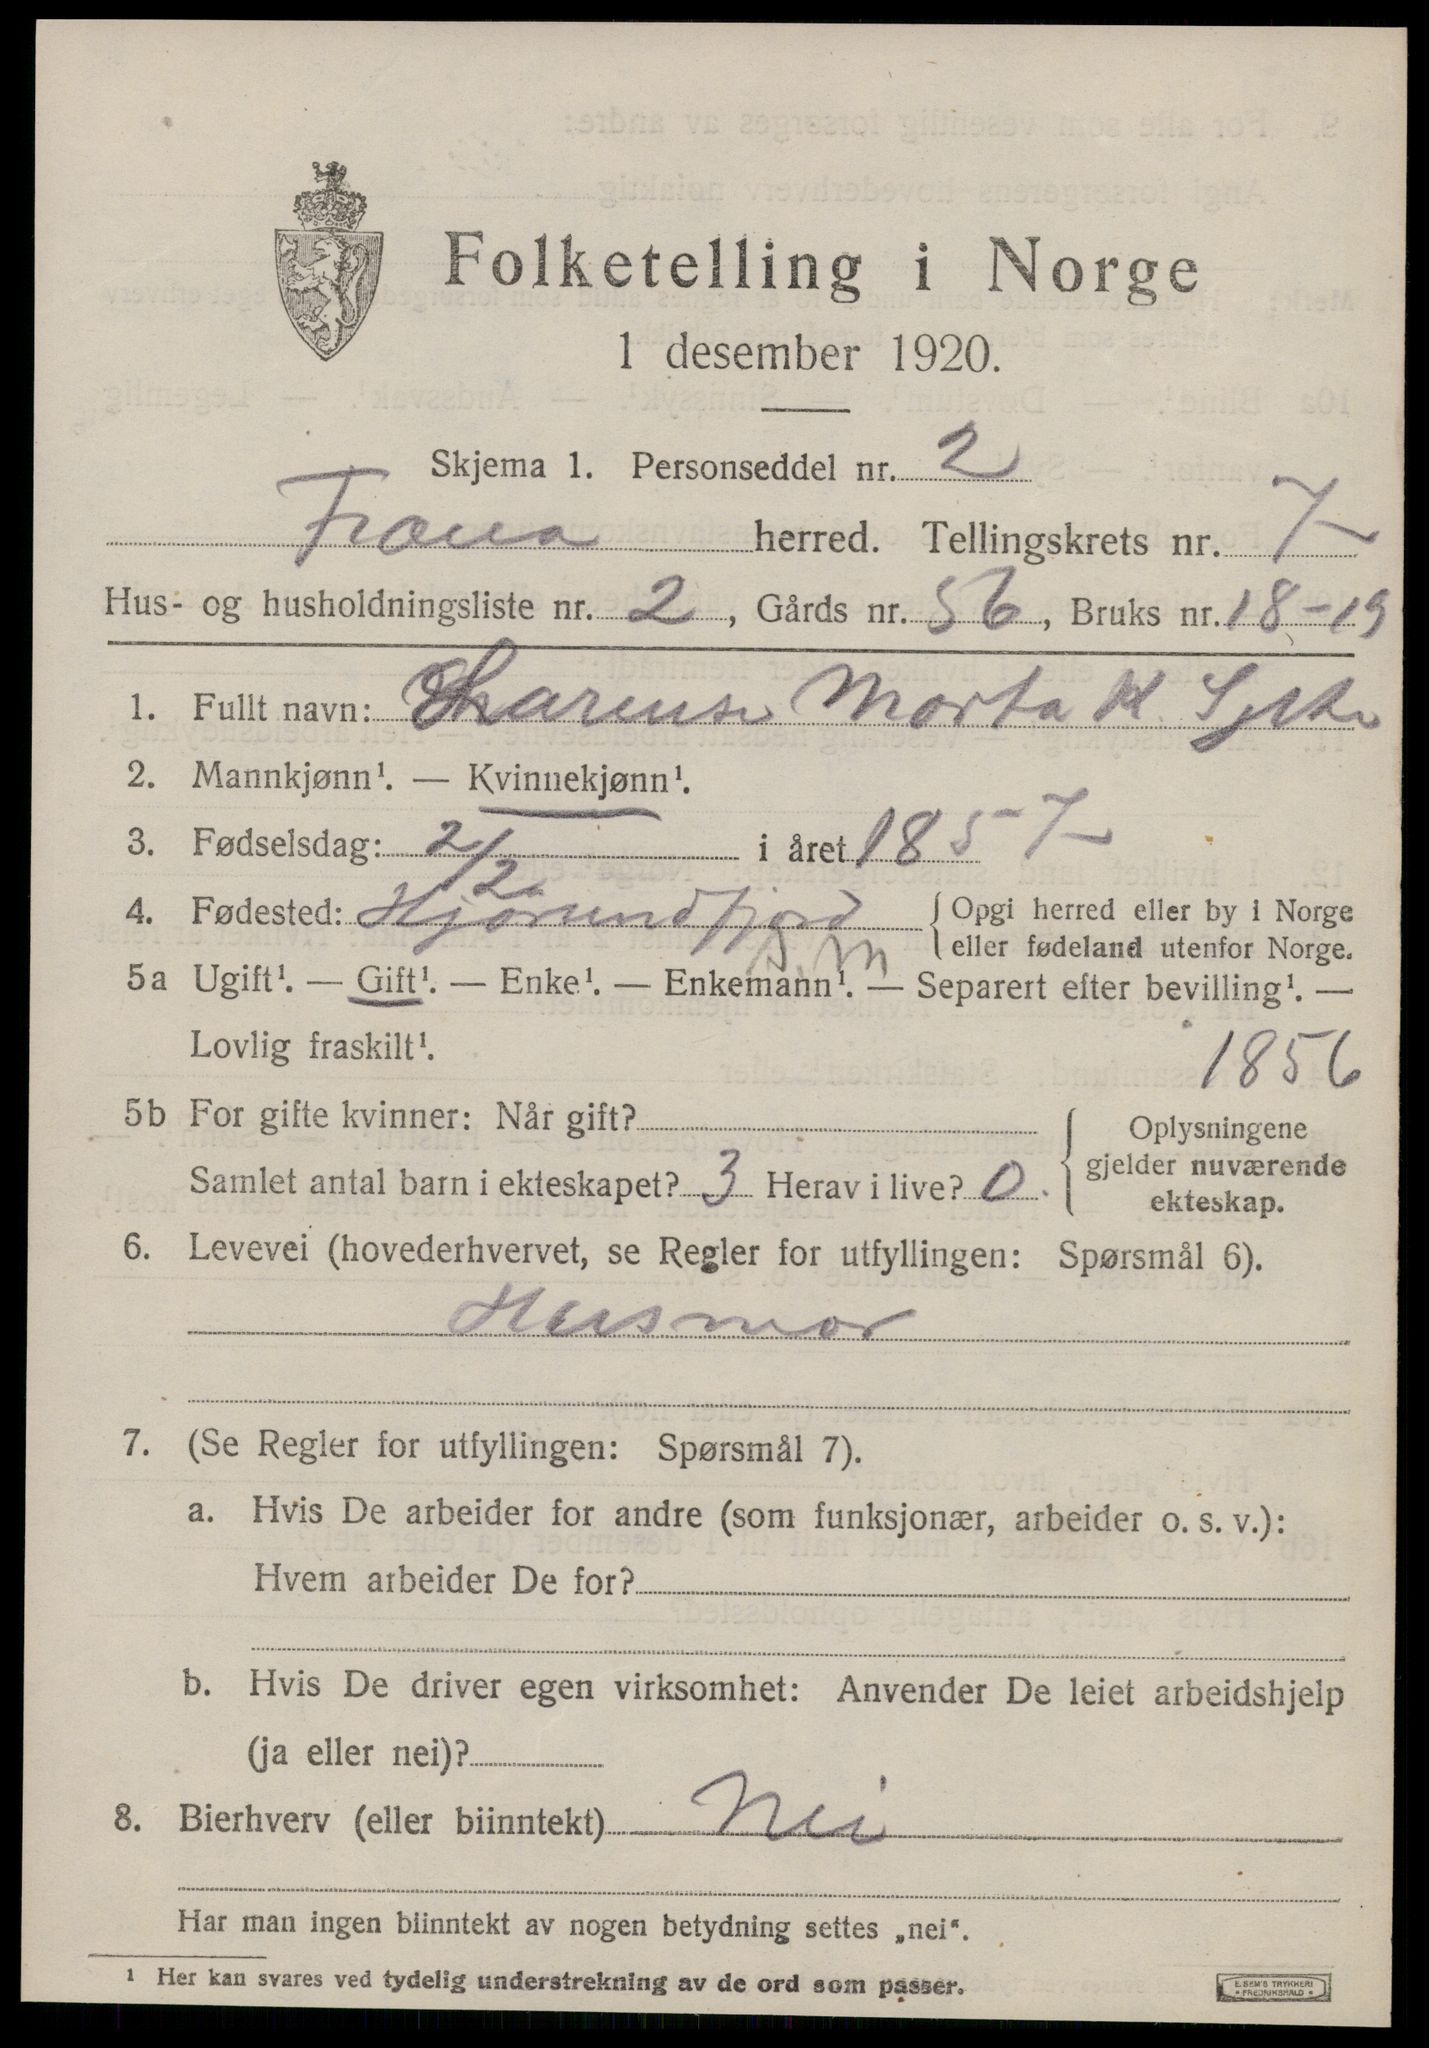 Folketelling i Norge
1 desember 1920.
Skjema 1. Personseddel nr. 2
Fræna herred. Tellingskrets nr. 7
Hus- og husholdningsliste nr. 2, Gårds nr. 56, Bruks nr. 18-19
1. Fullt navn: Marta K. Sylte
2. Mannkjønn¹. — Kvinnekjønn¹.
3. Fødselsdag: 2/2 i året 1857
4. Fødested: Hjørundfjord { Opgi herred eller by i Norge
eller fødeland utenfor Norge.
5a Ugift¹. — Gift¹. — Enke¹. — Enkemann¹. — Separert efter bevilling¹. —
Lovlig fraskilt¹.
1856
5b For gifte kvinner: Når gift?
Samlet antal barn i ekteskapet? 3 Herav i live? 0.
{ Oplysningene
gjelder nuværende
ekteskap.
6. Levevei (hovederhvervet, se Regler for utfyllingen: Spørsmål 6).
Husmor
7. (Se Regler for utfyllingen: Spørsmål 7).
a. Hvis De arbeider for andre (som funksjonær, arbeider o. s. v.):
Hvem arbeider De for?
b. Hvis De driver egen virksomhet: Anvender De leiet arbeidshjelp
(ja eller nei)?
8. Bierhverv (eller biinntekt) Nei
Har man ingen biinntekt av nogen betydning settes „nei“.
¹ Her kan svares ved tydelig understrekning av de ord som passer.
E. SEM'S TRYKKERI
FREDRIKSHALD